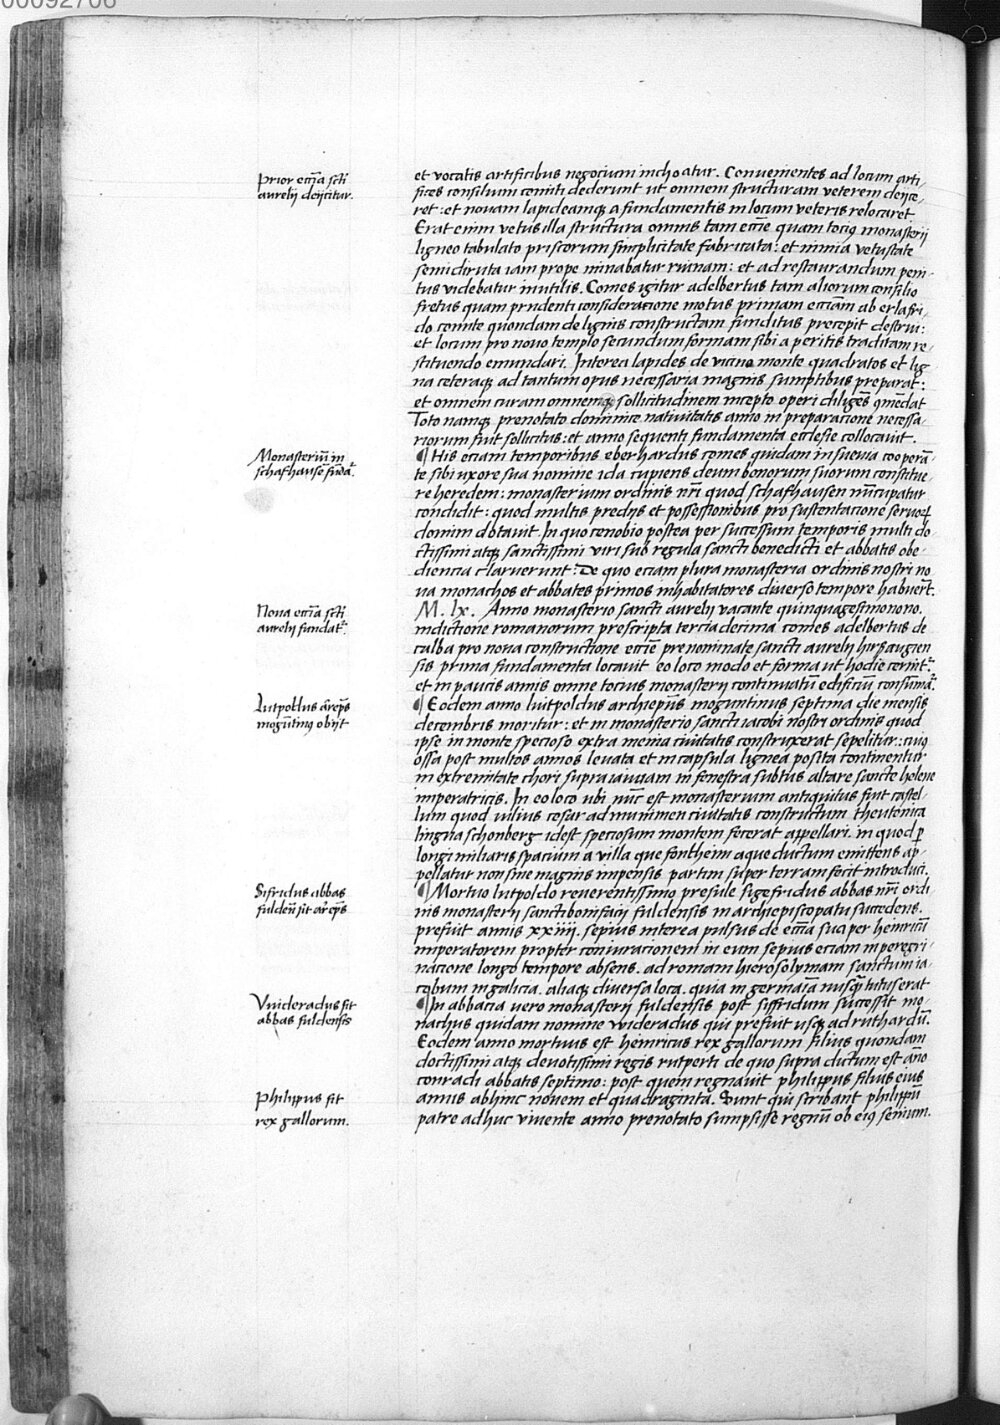 00092706
et vocatis artificibus negocium inchoatur. Convenientes ad locum arti-
Prior eccīa scti
aurelij deijcitur.
fices consilium comiti dederunt ut omnem structuram veterem deijce-
ret: et novam lapideamq a fundamentis in locum veteris relocaret
Erat enim vetus illa structura omnis tam eccīe quam tocius monasterij
ligneo tabulato priscorum simplicitate fabricata: et nimia vetustate
semidiruta iam prope minabatur ruinam: et ad restaurandum peni-
tus videbatur inutilis. Comes igitur adelbertus tam aliorum consilio
fretus quam prudenti consideracione motus primam eccīam ab erlafri-
do comite quondam de lignis constructam funditus precepit destrui:
et locum pro novo templo secundum formam sibi a peritis traditam re-
stituendo emundari. Interea lapides de vicino monte quadratos et lig-
na ceteraq ad tantum opus necessaria magnis sumptibus preparat:
et omnem curam omnemq sollicitudinem incepto operi diligēs 9mēdat
Toto namq prenotato dominice nativitatis anno in preparacione necessa-
riorum fuit sollicitus: et anno sequenti fundamenta ecclesie collocavit.
Monasteriū in
schafhausē fūdat
¶ His eciam temporibus eberhardus comes quidam in suevia cooperā-
te sibi uxore sua nomine ida cupiens deum bonorum suorum constitue-
re heredem: monasterium ordinis nrī quod schafhausen nūcupatur
condidit: quod multis predijs et possessionibus pro sustentacione servoꝝ
domini dotavit. In quo cenobio postea per successum temporis multi do
ctissimi atq sanctissimi viri sub regula sancti benedicti et abbatis obe-
diencia claruerunt: De quo eciam plura monasteria ordinis nostri no
va monachos et abbates primos inhabitatores diverso tempore habuerūt.
Nova eccīa scti
aurelij fundat
M. lx. Anno monasterio sancti aurelij vacante quinquagesimonono.
indictione romanorum prescripta terciadecima comes adelbertus de
calba pro nova constructione eccīe prenominate sancti aurelij hirsaugien
sis prima fundamenta locavit eo loco modo et forma ut hodie cernit
et in paucis annis omne tocius monasterij continuatū edificiū consūmat.
Luitpoldus areps
mogūtinus obijt
¶ Eodem anno luitpoldus archiepus moguntinus septima die mensis
decembris moritur: et in monasterio sancti iacobi nostri ordinis quod
ipse in monte specioso extra menia civitatis construxerat sepelitur: cuiꝯ
ossa post multos annos levata et in capsula lignea posita continentur
in extremitate chori supra ianuam in fenestra subtus altare sancte helene
imperatricis. In eo loco ubi nūc est monasterium antiquitus fuit castel-
lum quod iulius cesar ad munimen civitatis constructum theutonica
lingua schonberg idest speciosum montem fecerat appellari. in quod ꝑ
longi miliaris spacium a villa que fontheim aque ductum emittens ap-
pellatur non sine magnis impensis partim super terram fecit introduci.
Sifridus abbas
fulden̄ fit areps
¶ Mortuo luitpoldo reverentissimo presule sigefridus abbas nrī ordi
nis monasterij sancti bonifacij fuldensis in archiepiscopatu succedens.
prefuit annis xxiiij. sepius interea pulsus de eccīa sua per heinricū
imperatorem propter coniuracionem in eum sepius eciam in peregri-
nacione longo tempore absens. ad romam hierosolymam sanctum ia-
cobum in galicia. aliaq diversa loca. quia in germaīa nusq tutus erat
Vuideradus fit
abbas fuldensis
¶ In abbacia vero monasterij fuldensis post siffridum successit mo-
nachus quidam nomine wideradus qui prefuit usq ad ruthardū.
Eodem anno mortuus est heinricus rex gallorum filius quondam
doctissimi atq devotissimi regis rutperti de quo supra dictum est āno
conradi abbatis septimo: post quem regnavit philippus filius eius
Philippus fit
rex gallorum.
annis abhinc novem et quadraginta. Sunt qui scribant philippū
patre adhuc vivente anno prenotato sumpsisse regnū ob eiꝯ senium.